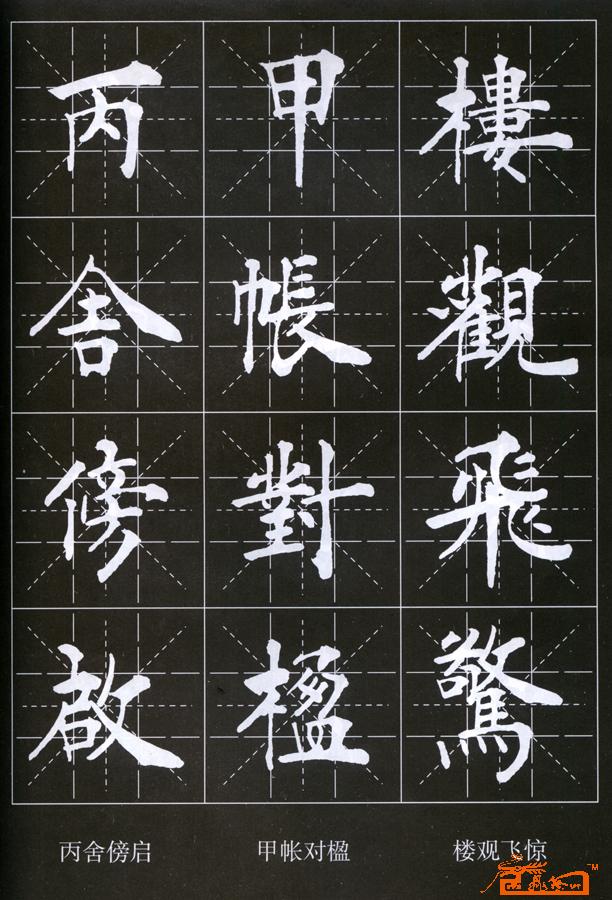 樓觀飛驚
甲帳對楹
丙舍傍啟
丙舍傍启
甲帐对楹
楼观飞惊
TM